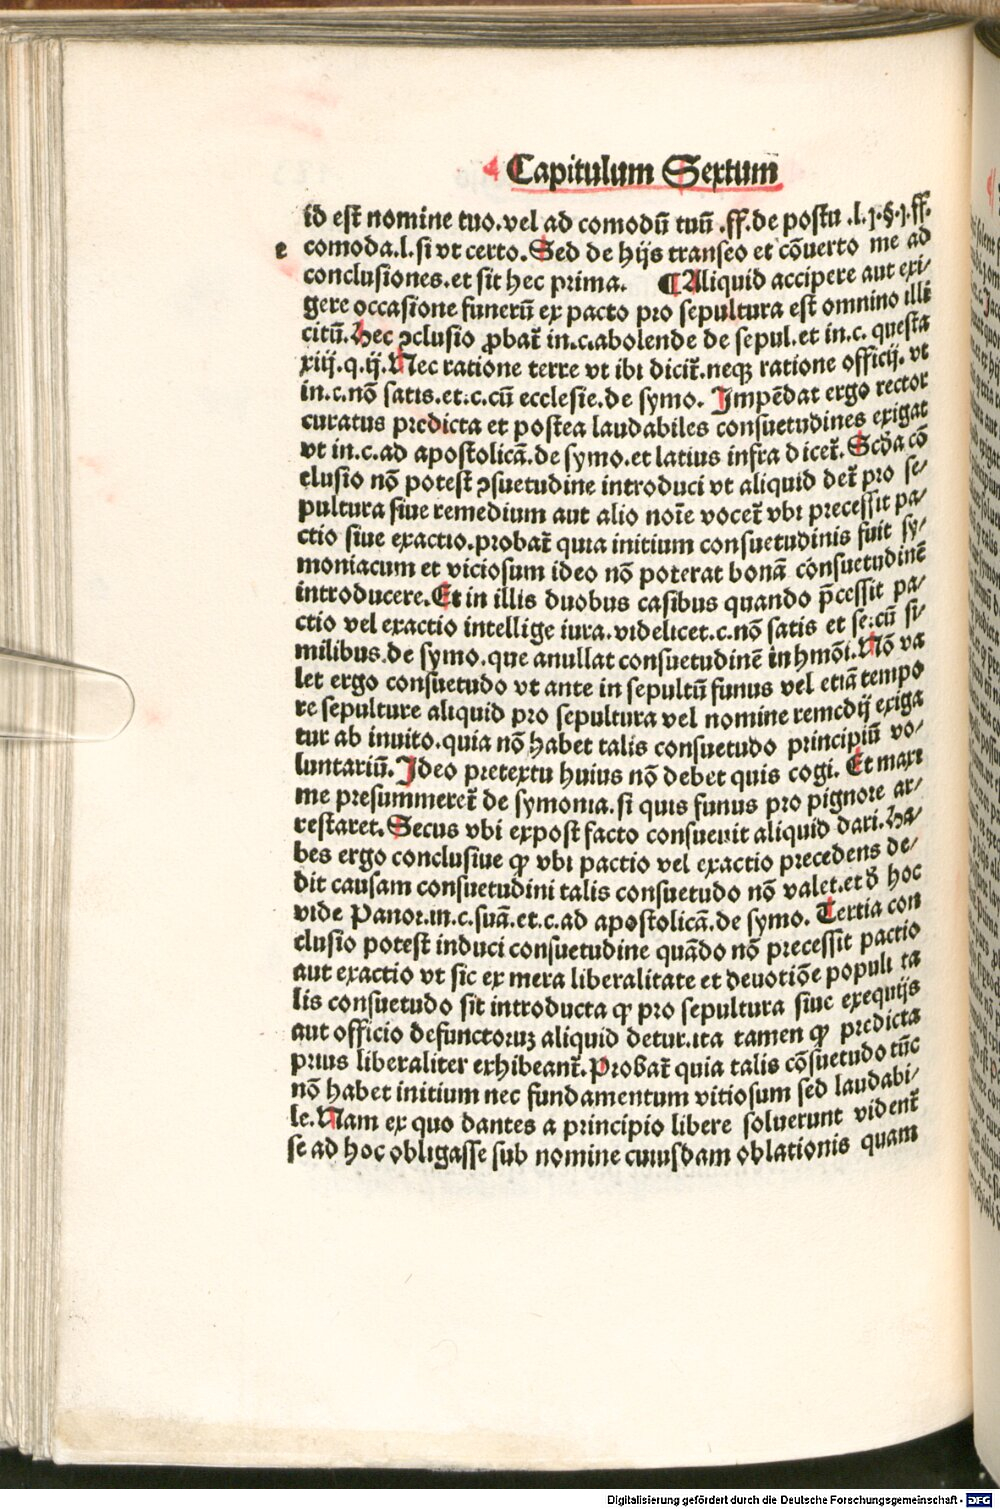 Capitulum Sextum
id est̄ nomine tuo.vel ad comodū tuū .ff.de postu .l.j.§.j.ff.
e
comoda.l.si vt certo. Sed de hijs transeo et cōuerto me ad
conclusiones.et sit hec prima. ¶ Aliquid accipere aut exi-
gere occasione funerū ex pacto pro sepultura est omnino illi
citū. Hec ꝯclusio ꝓbat̄ in.c.abolende de sepul.et in.c. questa
xiij.q.ij. Nec ratione terre vt ibi dicit̄.neqꝫ ratione officij. vt
in.c.nō satis.et.c.cū ecclesie.de symo. Impēdat ergo rector
curatus predicta et postea laudabiles consuetudines exigat
vt in.c.ad apostolicā.de symo.et latius infra dicet̄. Scďa cō
clusio nō potest ꝯsuetudine introduci vt aliquid det̄ pro se-
pultura siue remedium aut alio noīe vocet̄ vbi precessit pa-
ctio siue exactio.probat̄ quia initium consuetudinis fuit sy-
moniacum et viciosum ideo nō poterat bonā consuetudinē
introducere. Et in illis duobus casibus quando p̄cessit pa-
ctio vel exactio intellige iura.videlicet.c.nō satis et se.cū si-
milibus.de symo.que anullat consuetudinē in hmōi. Nō va
let ergo consuetudo vt ante in sepultū funus vel etiā tempo
re sepulture aliquid pro sepultura vel nomine remedij exiga
tur ab inuito.quia nō habet talis consuetudo principiū vo-
luntariū. Ideo pretextu huius nō debet quis cogi. Et maxi
me presummeret̄ de symonia.si quis funus pro pignore ar-
restaret. Secus vbi expost facto consueuit aliquid dari. Ha-
bes ergo conclusiue ꝙ vbi pactio vel exactio precedens de-
dit causam consuetudini talis consuetudo nō valet.et ď hoc
vide Panor.in.c.suā.et.c.ad apostolicā.de symo. Tertia con
clusio potest induci consuetudine quādo nō precessit pactio
aut exactio vt sic ex mera liberalitate et deuotiōe populi ta
lis consuetudo sit introducta ꝙ pro sepultura siue exequijs
aut officio defunctoruꝫ aliquid detur.ita tamen ꝙ predicta
prius liberaliter exhibeant̄. Probat̄ quia talis cōsuetudo tūc
nō habet initium nec fundamentum vitiosum sed laudabi-
le. Nam ex quo dantes a principio libere soluerunt vident̄
se ad hoc obligasse sub nomine cuiusdam oblationis quam
Digitalisierung gefördert durch die Deutsche Forschungsgemeinschaft - DFG